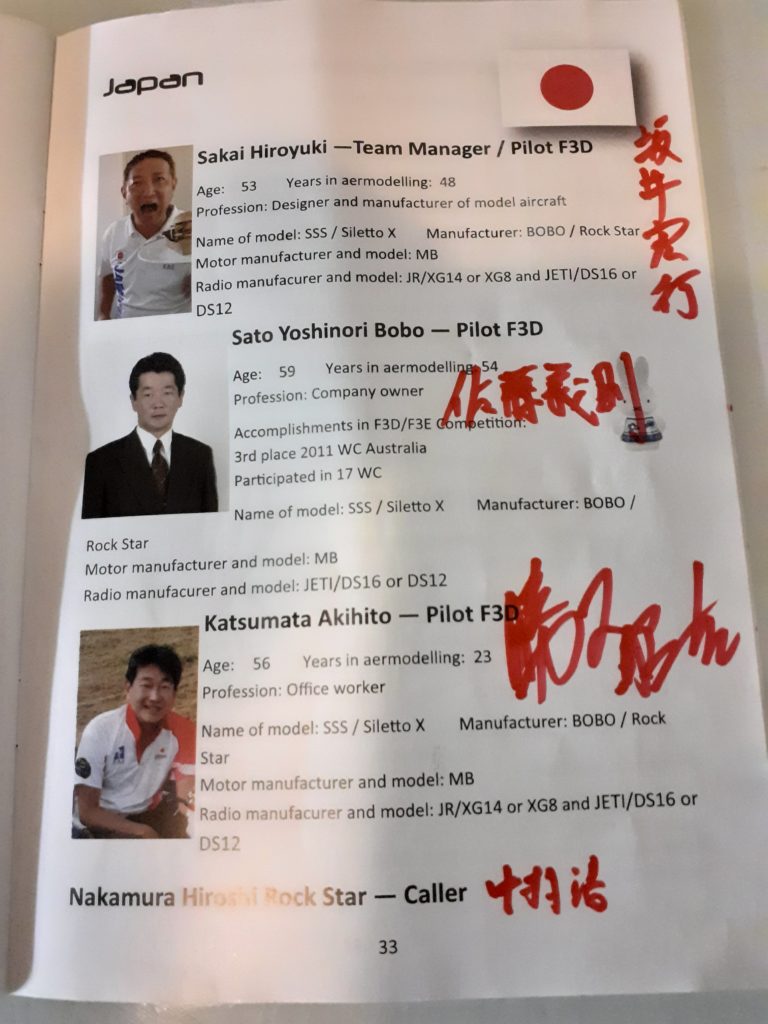 Japan
Sakai Hiroyuki —Team Manager / Pilot F3D
Age: 53 Years in aermodelling: 48
Profession: Designer and manufacturer of model aircraft
Name of model: SSS / Siletto X Manufacturer: BOBO / Rock Star
Motor manufacturer and model: MB
Radio manufacurer and model: JR/XG14 or XG8 and JETI/DS16 or
DS12
坂井宏行
Sato Yoshinori Bobo — Pilot F3D
Age: 59 Years in aermodelling: 54
Profession: Company owner
佐藤義則
Accomplishments in F3D/F3E Competition:
3rd place 2011 WC Australia
Participated in 17 WC
Name of model: SSS / Siletto X Manufacturer: BOBO /
Rock Star
Motor manufacturer and model: MB
Radio manufacurer and model: JETI/DS16 or DS12
Katsumata Akihito — Pilot F3D
Age: 56 Years in aermodelling: 23
Profession: Office worker
Name of model: SSS / Siletto X Manufacturer: BOBO / Rock
Star
Motor manufacturer and model: MB
Radio manufacurer and model: JR/XG14 or XG8 and JETI/DS16 or
DS12
Nakamura Hiroshi Rock Star — Caller 中村浩
33